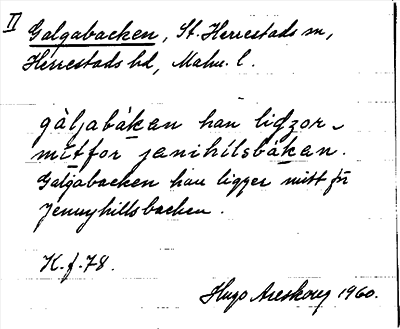 II
Galgabacken, St. Herrestads sn,
Herrestads hd, Malm. l.
gàljabákan han ligzor
mitfor jenihilsbákan.
Galgabacken han ligger mitt för
Jennyhillsbacken.
K. f. 78.
Hugo Areskoug 1960.